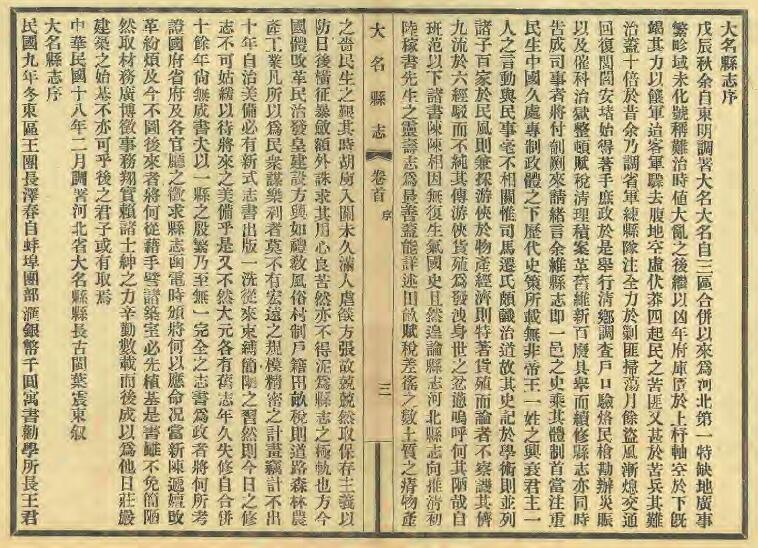 大名縣志序
戊辰秋余自東明調署大名大名自三區合併以來為河北第一特缺地廣事
繁畛域未化號稱難治時值大亂之後繼以凶年府庫匱於上杼軸空於下旣
竭其力以饟軍迨客軍驟去腹地空虛伏莽四起民之苦匪又甚於苦兵其難
治蓋十倍於昔余乃調省軍練縣隊注全力於剿匪掃蕩月餘盜風漸熄交通
回復閭閻安堵始得著手庶政於是舉行清鄉調查戶口驗烙民槍勘辦災賑
以及催科治獄整頓賦稅清理積案革舊維新百廢具舉而續修縣志亦同時
告成司事者將付剞劂來請緒言余維縣志即一邑之史乘其體制首當注重
民生中國久處專制政體之下歷代史策所載無非帝王一姓之興衰君主一
人之言動與民事毫不相關惟司馬遷氏頗識治道故其史記於學術則並列
諸子百家於民風則兼採游俠於物產經濟則特著貨殖而論者不察譏其儕
九流於六經駁而不純其傳游俠貨殖為發洩身世之忿慨嗚呼何其陋哉自
班范以下諸書陳陳相因無復生氣國史且然遑論縣志河北縣志向推清初
陸稼書先生之靈壽志為最善蓋能詳述田畝賦稅差徭之數土質之瘠物產
大名縣志
卷首
序
三
之嗇民生之艱其時胡虜入關未久滿人虐燄方張故兢兢然取保存主義以
防日後橫征暴斂額外誅求其用心良苦然亦不得泥為縣志之極軌也方今
國體改革民治發皇建設方興如禮教風俗村制戶籍田畝稅則道路森林農
產工業凡所以為民衆謀樂利者莫不有宏遠之規模精密之計畫竊計不出
十年自治美備必有新式志書出版一洗從來束縛簡陋之習然則今日之修
志不可姑緩以待將來之美備乎是又不然大元各有舊志年久失修自合併
十餘年尙無成書夫以一縣之殷繁乃至無一完全之志書為政者將何所考
證國府省府及各官廳之徵求縣志函電時頒將何以應命况當新陳遞嬗改
革紛煩及今不圖後來者將何從藉手譬諸築室必先植基是書雖不免簡陋
然取材務廣博徵事務翔實賴諸士紳之力辛勤數載而後成以為他日莊嚴
建築之始基不亦可乎後之君子或有取焉
中華民國十八年二月調署河北省大名縣縣長古閩葉震東叙
大名縣志序
民國九年冬東區王團長澤春自蚌埠團部滙銀幣千圓寓書勸學所長王君